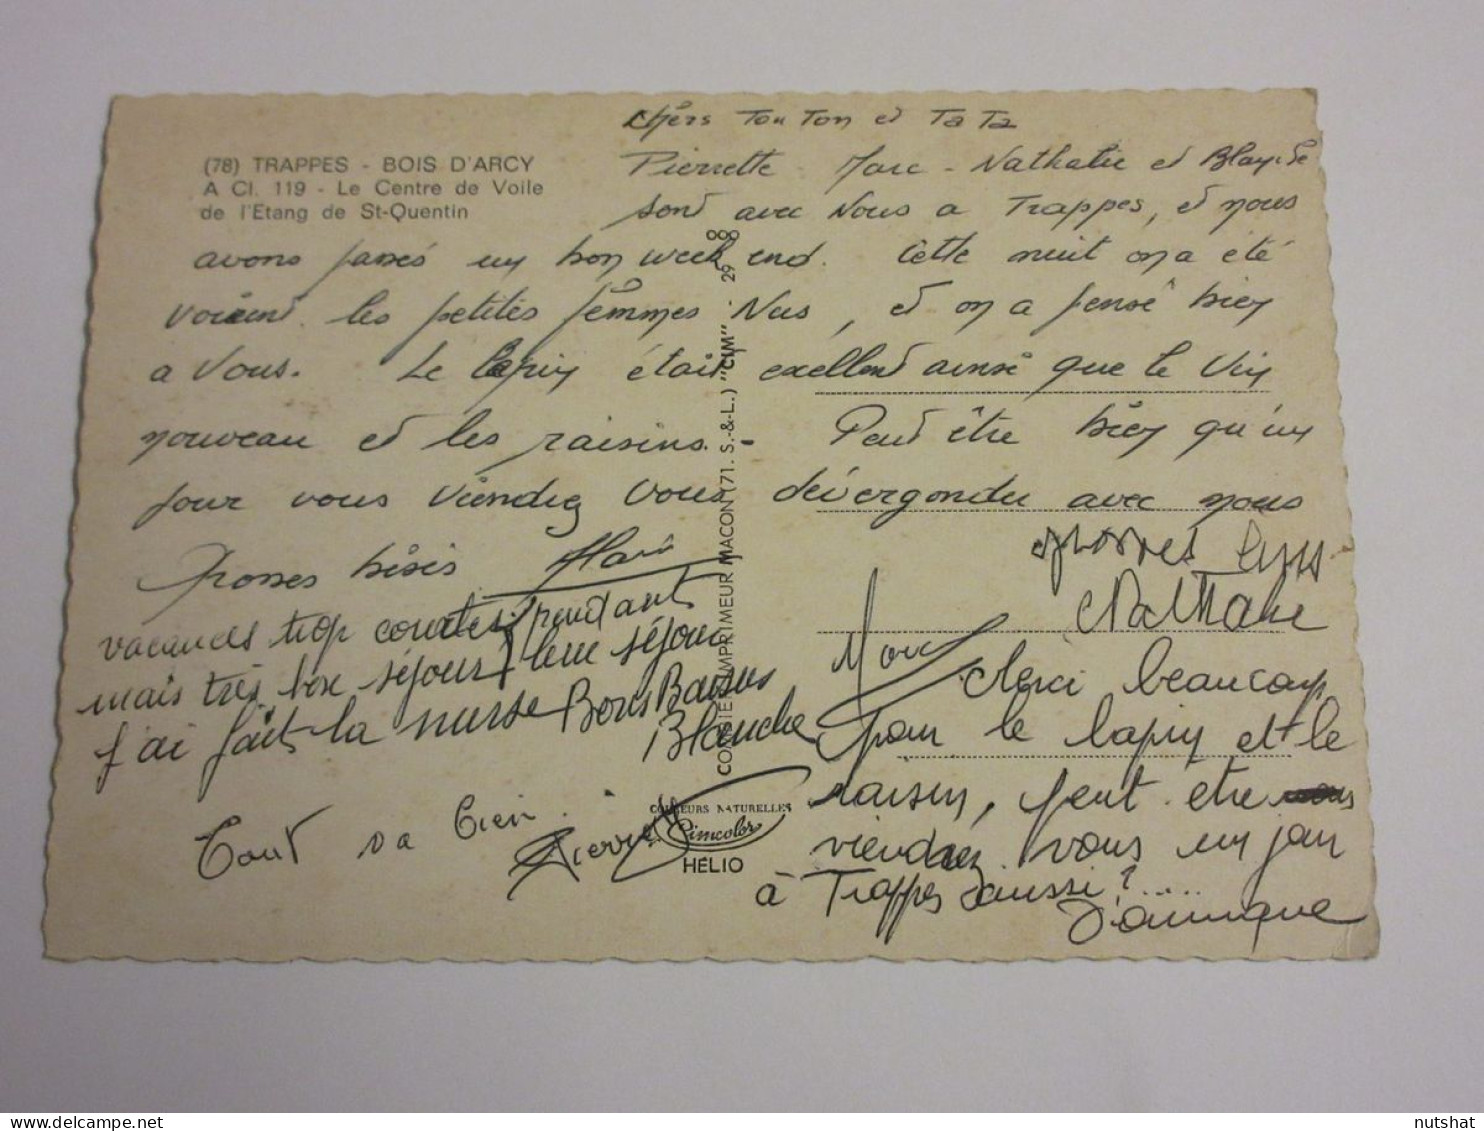 (78) TRAPPES - BOIS D'ARCY
A CI. 119 - Le Centre de Voile
de l'Etang de St-Quentin
Chers TonTon et TaTa
Pierrette - Marc - Nathalie et
sont avec Nous a Trappes, et nous
avons passés un bon week end. Cette nuit on a été
les petites femmes Nus, et on a pensé bien
a Vous. Le lapin était excellent ainsi que le Vin
nouveau et les raisins. - Peut être bien qu'un
jour vous viendrez vous dévergonder avec nous
Grosses bises
grosses
Nathalie
vacances trop courtes pendant
mais très bon séjour leur séjour
j'ai fait la nurse Bons Baisers
Blanche
Marc
Merci beaucoup
pour le lapin et le
raisin, peut etre
viendrez vous un jour
à Trappes aussi?.....
Dominique
Tout va bien.
Pierrette
COMBIER IMPRIMEUR MACON (71. S.-&-L.) "CIM" - 29
COULEURS NATURELLES
Cimcolor
HELIO
nutshat